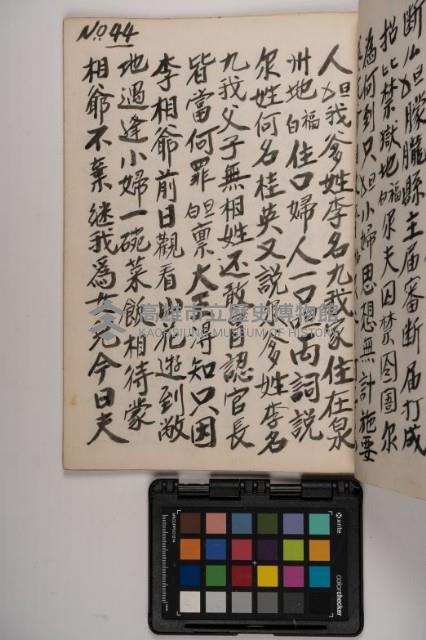 No 44
断 旦朦朧縣主屈審断屈打成
招 禁獄地白福尔夫囚禁囹圄尔
為何到只旦小婦思想無計施要
人旦我爹姓李名九我家住在泉
州地白福住口婦人一口 両詞說
尔姓何名桂英又說 爹姓李名
九我父子無相姓还敢冒認官長
皆當何罪白旦禀大王得知只因
李相爺前日觀看 犯遊到敝
地過逢小婦一碗菜飯相待蒙
相爺不棄継我為女兒今日夫
高雄市立歷史博物館
KAOHSIUNG MUSEUM OF HISTORY
colorchecker
x-rite